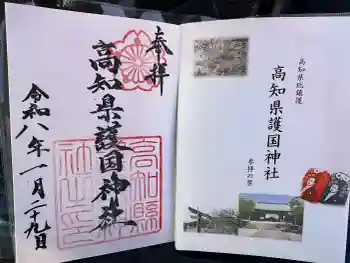 奉拝
高知県護国神社
令和八年一月二十九日
高知縣
高知県総鎮護
高知県護国神社
参拝の栞